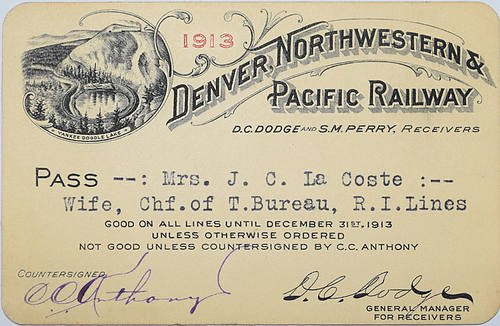 1913
DENVER, NORTHWESTERN &
PACIFIC RAILWAY
D.C. DODGE AND S.M. PERRY, RECEIVERS
YANKEE DOODLE LAKE
PASS --: Mrs. J. C. La Coste :--
Wife, Chf.of T.Bureau, R.I.Lines
GOOD ON ALL LINES UNTIL DECEMBER 31ST, 1913
UNLESS OTHERWISE ORDERED
NOT GOOD UNLESS COUNTERSIGNED BY C.C. ANTHONY
COUNTERSIGNED
CC Anthony
D. C. Dodge
GENERAL MANAGER
FOR RECEIVERS